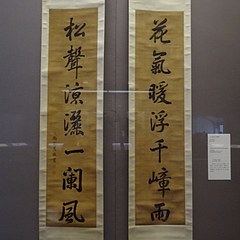 花氣暖浮千嶂雨
松聲涼灑一闌風